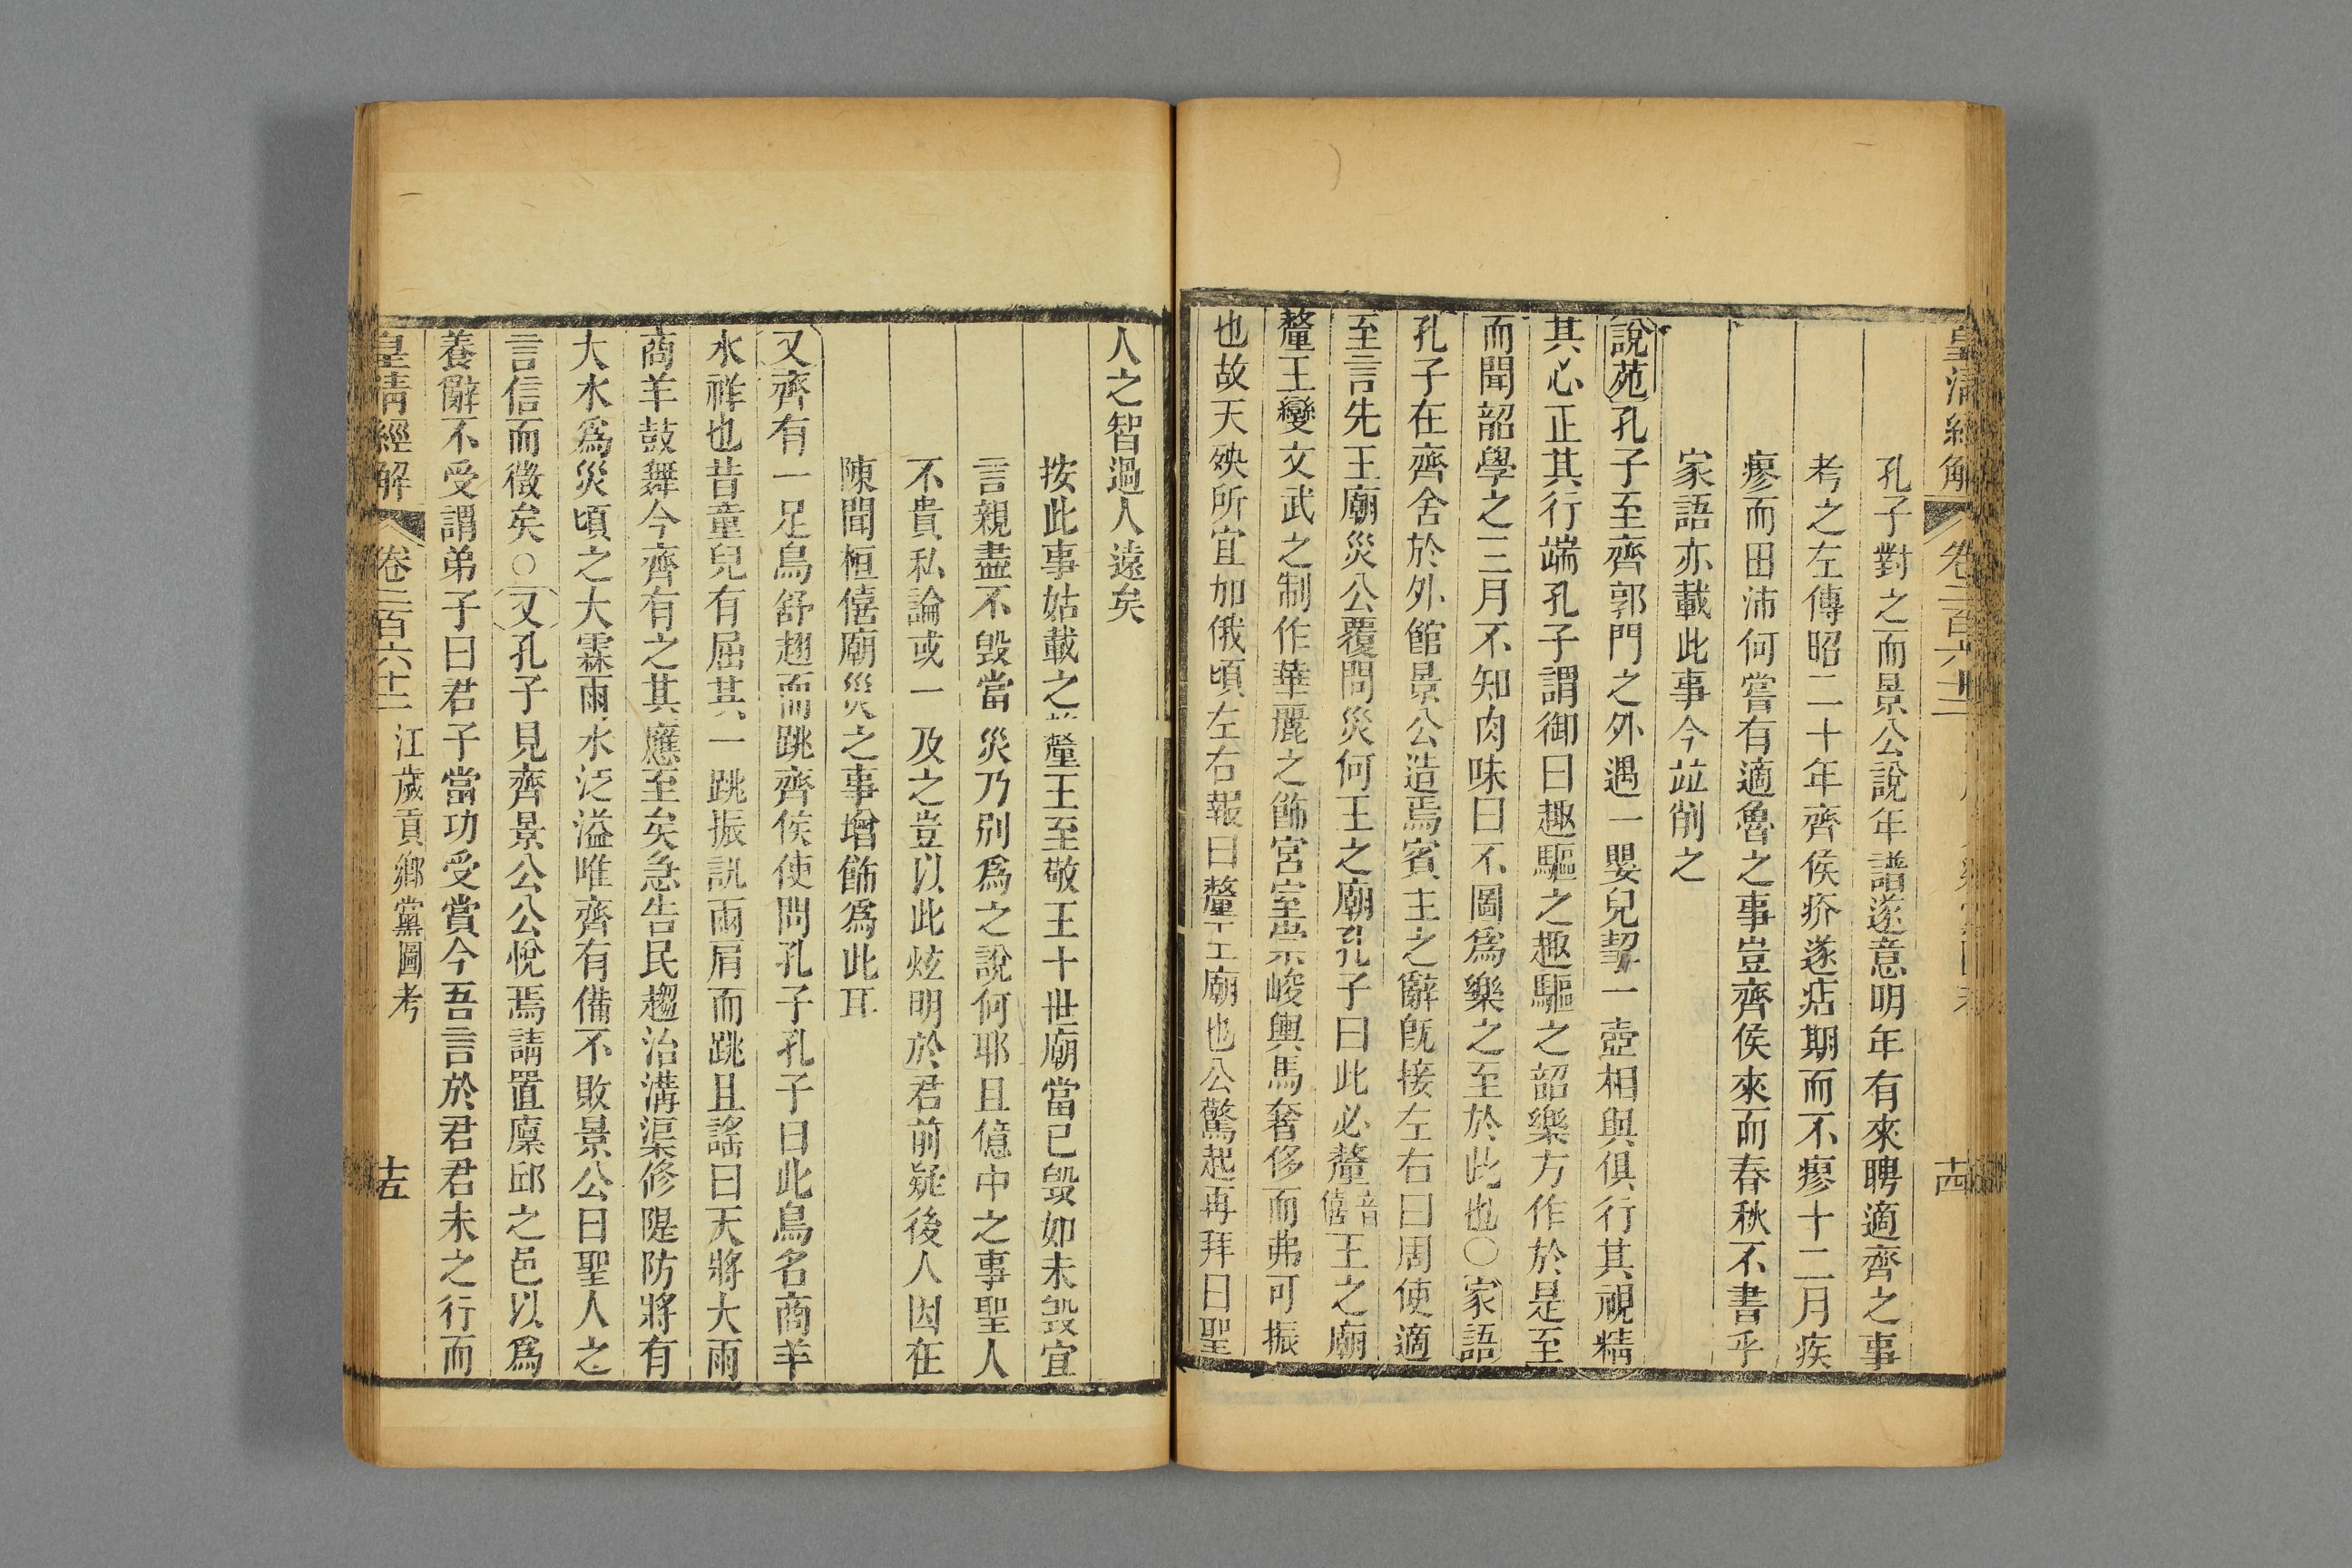 皇清經解 卷二百六十二 十四
孔子對之而景公說年譜遂意明年有來聘適齊之事
考之左傳昭二十年齊侯疥遂痁期而不瘳十二月疾
瘳而田沛何嘗有適魯之事豈齊侯來而春秋不書乎
家語亦載此事今竝削之
說苑孔子至齊郭門之外遇一嬰兒挈一壺相與俱行其視精
其心正其行端孔子謂御曰趣驅之趣驅之韶樂方作於是至
而聞韶學之三月不知肉味曰不圖爲樂之至於此也○家語
孔子在齊舍於外館景公造焉賓主之辭旣接左右曰周使適
至言先王廟災公覆問災何王之廟孔子曰此必釐音僖王之廟
釐王變文武之制作華麗之飾宮室崇峻輿馬奢侈而弗可振
也故天殃所宜加俄頃左右報曰釐王廟也公驚起再拜曰聖
人之智過人遠矣
按此事姑載之釐王至敬王十世廟當已毀如未毀宜
言親盡不毀當災乃別爲之說何耶且億中之事聖人
不貴私論或一及之豈以此炫明於君前疑後人因在
陳聞桓僖廟災之事增飾爲此耳
又齊有一足鳥舒翅而跳齊侯使問孔子孔子曰此鳥名商羊
水祥也昔童兒有屈其一跳振訊兩肩而跳且謠曰天將大雨
商羊鼓舞今齊有之其應至矣急告民趨治溝渠修隄防將有
大水爲災頃之大霖雨水泛溢唯齊有備不敗景公曰聖人之
言信而徵矣○又孔子見齊景公公悅焉請置廩邱之邑以爲
養辭不受謂弟子曰君子當功受賞今吾言於君君未之行而
皇清經解 卷二百六十二 江歲貢鄉黨圖考 十五